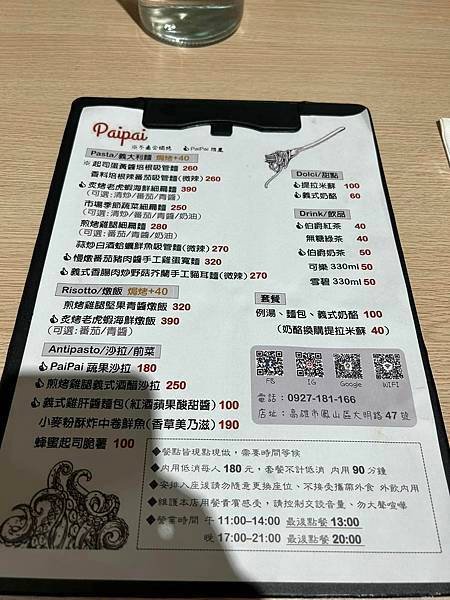 Paipai
※不適合焗烤 👍PaiPai 推薦
Pasta/義大利麵 焗烤+40
※起司蛋黃醬培根吸管麵 260
香料培根辣番茄吸管麵(微辣) 260
👍炙烤老虎蝦海鮮細扁麵 390
(可選:清炒/番茄/青醬)
市場季節蔬菜細扁麵 250
(可選:清炒/番茄/青醬/奶油)
煎烤雞腿細扁麵 280
(可選:番茄/青醬/奶油)
蒜炒白酒蛤蠣鮮魚吸管麵(微辣) 270
👍慢燉番茄豬肉醬手工雞蛋寬麵 320
👍義式香腸肉炒野菇芥蘭手工貓耳麵(微辣) 270
Risotto/燉飯 焗烤+40
煎烤雞腿堅果青醬燉飯 320
👍炙烤老虎蝦海鮮燉飯 390
(可選:番茄/青醬)
Antipasto/沙拉/前菜
👍PaiPai 蔬果沙拉 180
👍煎烤雞腿義式酒醋沙拉 250
👍義式雞肝醬麵包(紅酒蘋果酸甜醬) 100
小麥粉酥炸中卷鮮魚(香草美乃滋) 190
蜂蜜起司脆薯 100
Dolci/甜點
👍提拉米蘇 100
👍義式奶酪 60
Drink/飲品
👍伯爵紅茶 40
無糖綠茶 40
👍伯爵奶茶 50
可樂 330ml 50
雪碧 330ml 50
套餐
例湯、麵包、義式奶酪 100
(奶酪換購提拉米蘇 40)
FB IG Google WIFI
電話:0927-181-166
店址:高雄市鳳山區大明路 47 號
◆餐點皆現點現做,需要時間等候
◆內用低消每人 180 元,套餐不計低消 內用 90 分鐘
◆安排入座後請勿隨意更換座位、不接受攜帶外食 外飲內用
◆維護本店用餐賓客感受,請控制交談音量、勿大聲喧嘩
◆營業時間 午 11:00–14:00 最後點餐 13:00
晚 17:00–21:00 最後點餐 20:00